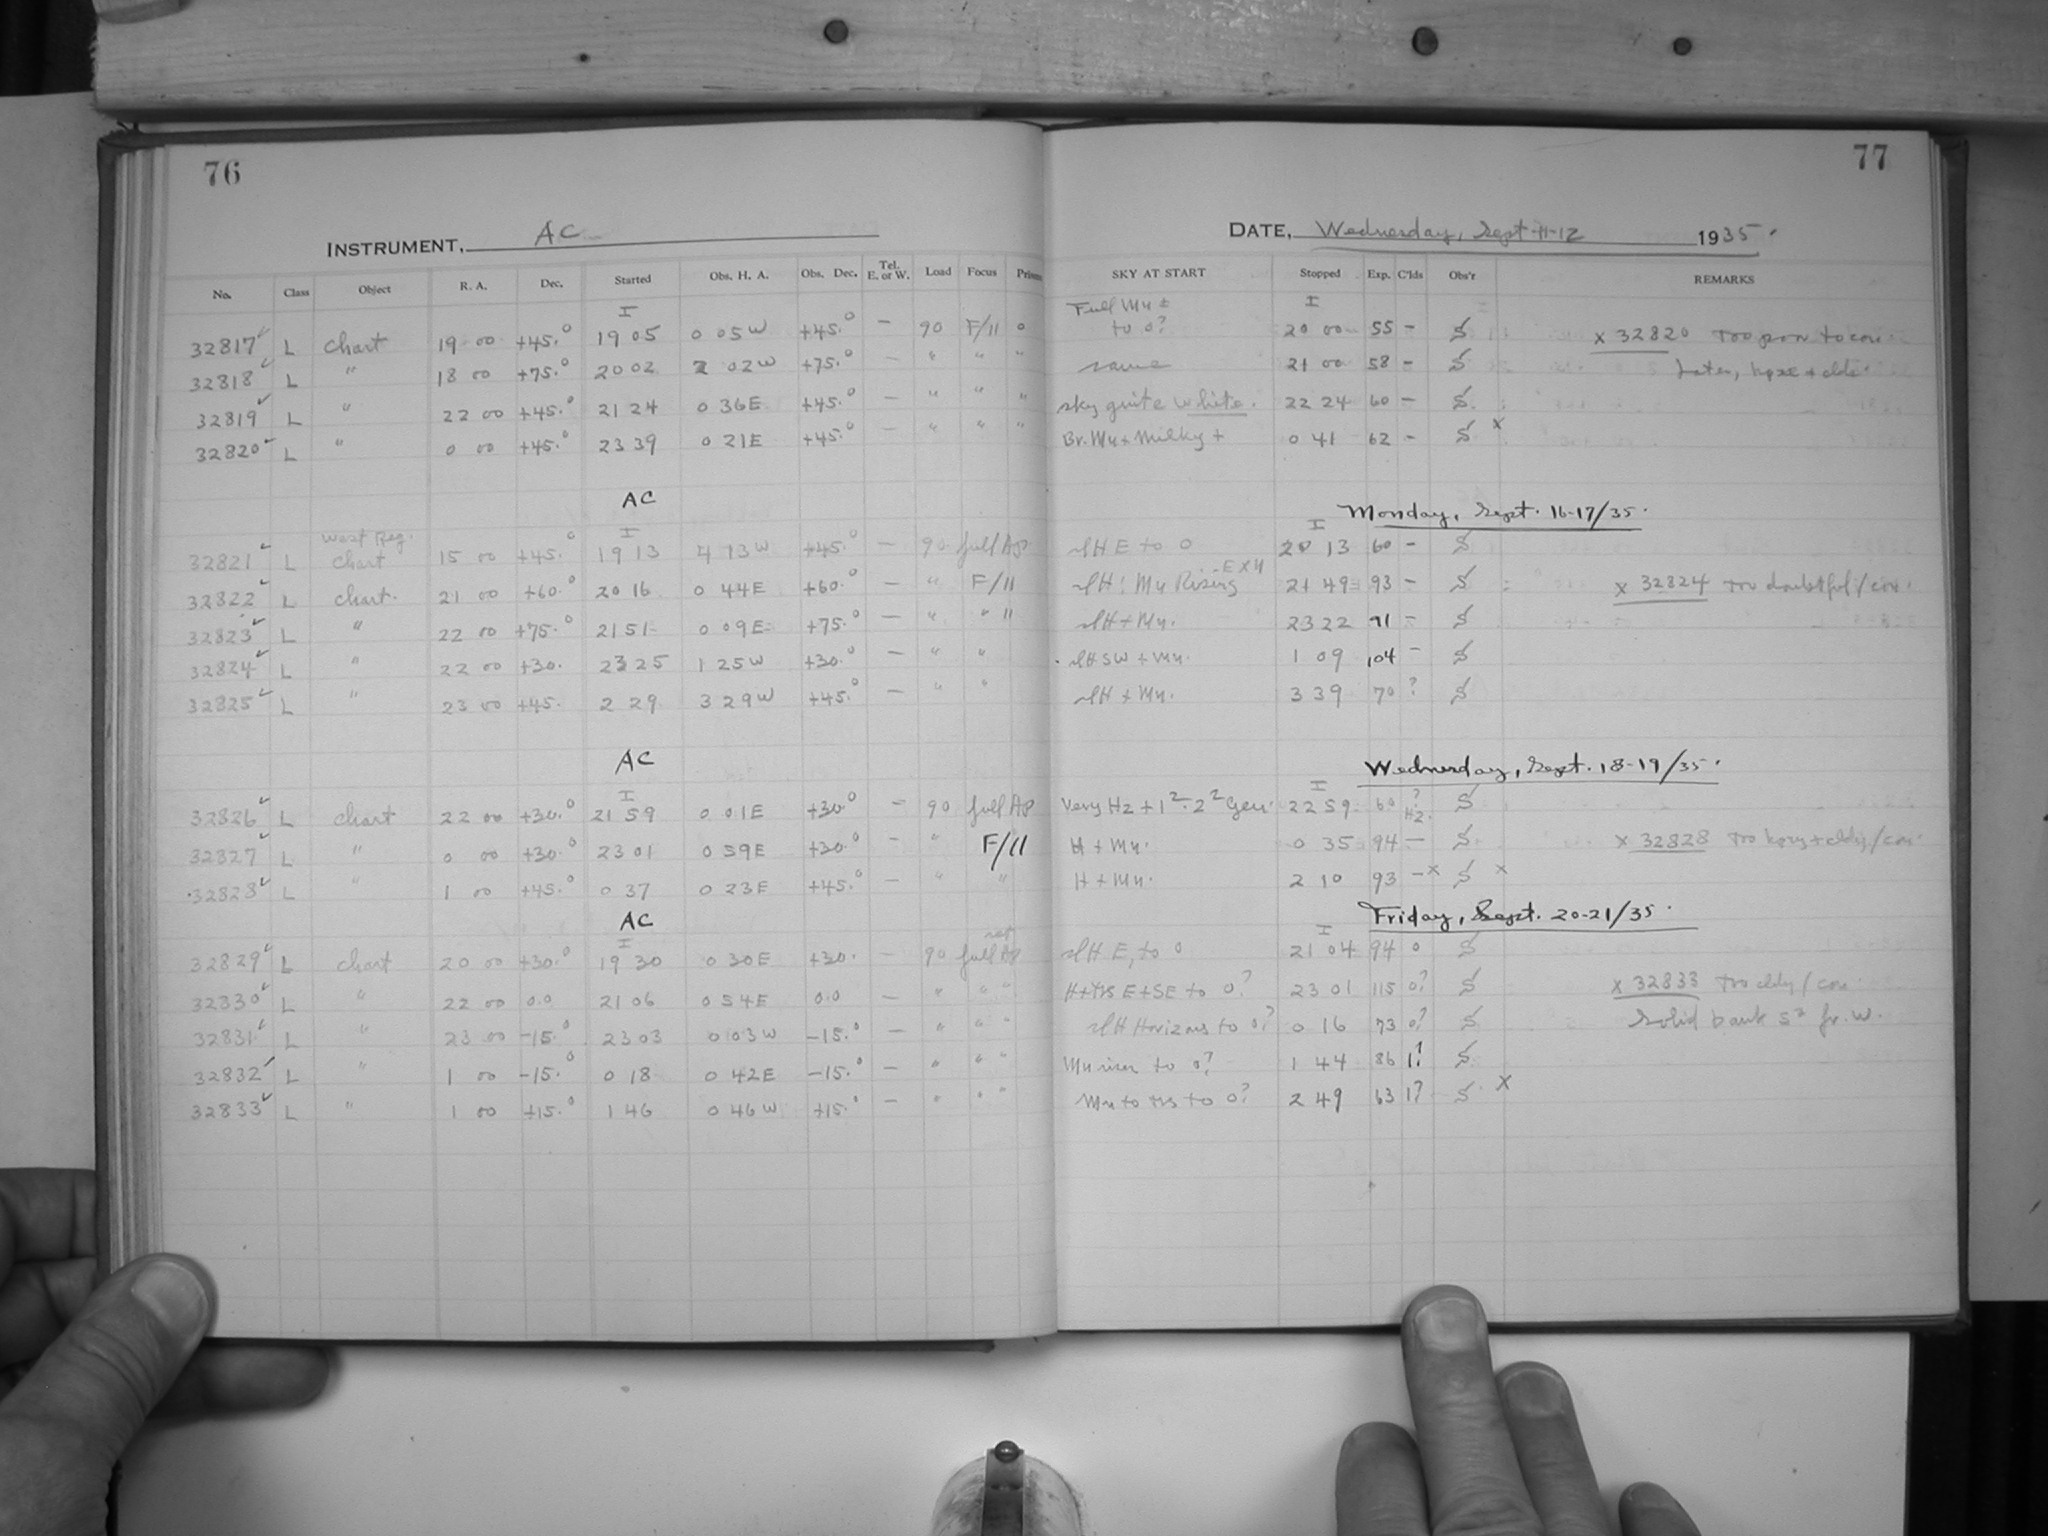 76
77
INSTRUMENT, AC
DATE, Wednesday, Sept 11-12 1935.
No. Class Object R. A. Dec. Started Obs. H. A. Obs. Dec. Tel. E. or W. Load Focus Prism SKY AT START Stopped Exp. C'lds Obs'r REMARKS
I Full Mn ± I
32817 ✓ L Chart 19 00 +45.° 19 05 0 05 W +45.° — 90 F/11 0 to 0? 20 00 55 – S x 32820 Too poor to con.
32818 ✓ L " 18 00 +75.° 20 02 2 02 W +75.° — " " " same 21 00 58 – S Later, haze + clds
32819 ✓ L " 22 00 +45.° 21 24 0 36 E +45.° — " " " sky quite white. 22 24 60 – S.
32820 ✓ L " 0 00 +45.° 23 39 0 21 E +45.° — " " " Br. Mn + Milky + 0 41 62 – S x
AC Monday, Sept. 16-17/35.
West Reg. I I
32821 ✓ L Chart 15 00 +45.° 19 13 4 13 W +45.° — 90 full Ap SH E to 0 20 13 60 – S
32822 ✓ L Chart. 21 00 +60.° 20 16 0 44 E +60.° — " F/11 SH! Mn Rising 21 49 93 – S x 32824 Too doubtful/con.
32823 ✓ L " 22 00 +75.° 21 51 0 09 E +75.° — " " " SH + Mn. 23 22 91 – S
32824 ✓ L " 22 00 +30. 23 25 1 25 W +30.° — " " SH SW + Mn. 1 09 104 – S
32825 ✓ L " 23 00 +45. 2 29 3 29 W +45.° — " " SH + Mn. 3 39 70 ? S
AC Wednesday, Sept. 18-19/35.
I I
32826 ✓ L Chart 22 00 +30.° 21 59 0 01 E +30.° — 90 full Ap Very Hz + 1²-2² Gen. 22 59 60 ? Hz. S
32827 ✓ L " 0 00 +30.° 23 01 0 59 E +30.° — " F/11 H + Mn. 0 35 94 — S x 32828 Too hazy + cldy/con
32828 ✓ L " 1 00 +45.° 0 37 0 23 E +45.° — " " H + Mn. 2 10 93 – x S x
AC Friday, Sept. 20-21/35.
I I
32829 ✓ L Chart 20 00 +30.° 19 30 0 30 E +30. — 90 full Ap SH E, to 0 21 04 94 0 S
32830 ✓ L " 22 00 0.0 21 06 0 54 E 0.0 — " " " E + SE to 0? 23 01 115 0? S x 32833 Too cldy/con
32831 ✓ L " 23 00 -15.° 23 03 0 03 W -15.° — " " " SH Horizons to 0? 0 16 73 0? S Solid bank S² fr. W.
32832 ✓ L " 1 00 -15.° 0 18 0 42 E -15.° — " " " Mn rises to 0? 1 44 86 1? S
32833 ✓ L " 1 00 +15.° 1 46 0 46 W +15.° — " " " Mn to 0? 2 49 63 1? S x